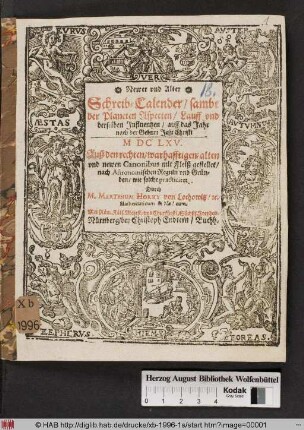 EURUS
AUSTER
VER
16.
Newer und Alter
Schreib-Calender / sambt
der Planeten Aspecten / Lauff und
derselben Influentzen / auff das Jahr
nach der Geburt Jesu Christi
M DC LXV.
Auß den rechten / warhafftigen alten
und newen Canonibus mit Fleiß gestellet /
nach Astronomischen Regeln und Grün-
den / wie solche practiciren,
Durch
M. MARCUM
von Lochowitz / &c.
Nürnberg / bey Christoph Endtern / Buchh.
ÆSTAS
ZEPHERUS
HIEMS
BOREAS.
Xb
1996
Herzog August Bibliothek Wolfenbüttel
Kodak
© HAB http://diglib.hab.de/drucke/xb-1996-1s/start.htm?image=00001